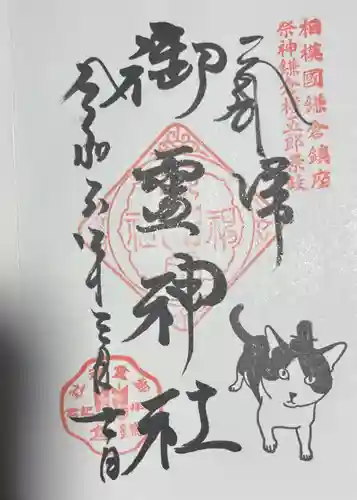 相模國鎌倉鎮座
祭神鎌倉権五郎景政
奉拝
御霊神社
令和六年三月十一日